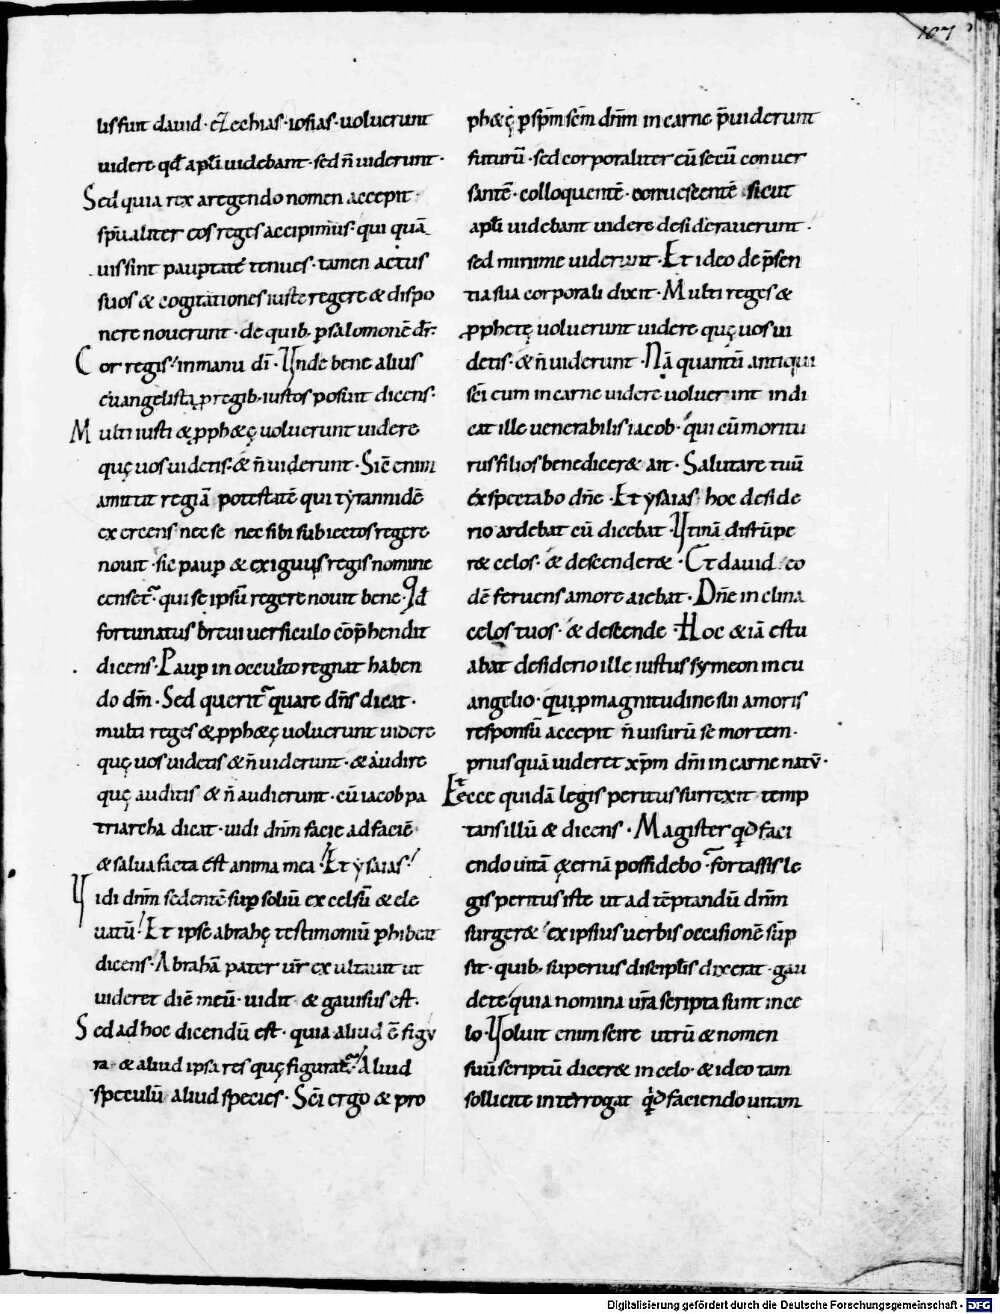 107
lis sunt dauid · ezechias · iosias · uoluerunt
uidere qđ apłi uidebant · sed n̄ uiderunt ·
Sed quia rex a regendo nomen accepit ·
sp̄ualiter eos reges accipimus · qui quā
uis sint paup̱tatē tenues · tamen actus
suos & cogitationes iuste regere & dispo
nere nouerunt · de quib; p̱ salomonē dr̄ ·
Cor regis in manu dī · Unde bene alius
euangelista p̱ regib; iustos posuit dicens ·
Multi iusti & p̱ph&ę uoluerunt uidere
quę uos uidetis · & n̄ uiderunt · Sic̄ enim
amittit regiā potestatē qui tyrannidē
exercens nec se nec sibi subiectos regere
nouit · sic paup̱ & exiguus regis nomine
censet᷑ · qui se ipsū regere nouit bene · Qđ
fortunatus breui uersiculo cōp̄hendit
dicens · Paup̱ in occulto regnat haben
do dm̄ · Sed querit᷑ quare dn̄s dicat ·
multi reges & p̱ph&ę uoluerunt uidere
quę uos uidetis & n̄ uiderunt · & audire
quę auditis & n̄ audierunt · cū iacob pa
triarcha dicat · uidi dn̄m facie ad faciē
& salua facta est anima mea · Et ysaias ·
Uidi dn̄m sedentē sup̱ soliū excelsū & ele
uatū · Et ipse abrahę testimoniū p̱hibeat
dicens · Abrahā pater ur̄ exultauit ut
uideret diē meū · uidit & gauisus est ·
Sed ad hoc dicendū est · quia aliud ē figu
ra · & aliud ipsa res quę figurat᷑ · Aliud
speculū aliud species · Sc̄i ergo & pro
ph&ę p̱ sp̄m sc̄m dn̄m in carne p̄uiderunt
futurū · sed corporaliter cū secū conuer
santē · colloquentē · conuescentē sicut
apłi uidebant uidere desiderauerunt ·
sed minime uiderunt · Et ideo de p̄sen
tia sua corporali dixit · Multi reges &
p̱phetę uoluerunt uidere quę uos ui
detis · & n̄ uiderunt · Nā quantū antiqui
sc̄i eum in carne uidere uoluerint indi
cat ille uenerabilis iacob · qui cū moritu
rus filios benedicer& ait · Salutare tuū
expectabo dn̄e · Et ysaias hoc deside
rio ardebat cū dicebat · Utinā disrūpe
res celos · & descenderes · Et dauid eo
dē feruens amore aiebat · Dn̄e inclina
celos tuos · & descende · Hoc & iā estu
abat desiderio ille iustus symeon in eu
angelio · qui p̱ magnitudine sui amoris
responsū accepit n̄ uisurū se mortem ·
prius quā uideret xp̄m dn̄i in carne natū ·
Et ecce quidā legis peritus surrexit temp
tans illū & dicens · Magister qđ faci
endo uitā ęternā possidebo · fortassis le
gis peritus iste ut ad tēptandū dn̄m
surger& ex ipsius uerbis occasionē sūp
sit · quib; superius discipłis dixerat · gau
dete quia nomina ur̄a scripta sunt in ce
lo · Uoluit enim scire utrū & nomen
suū scriptū dicer& in celo · & ideo tam
sollicite interrogat qđ faciendo uitam
Digitalisierung gefördert durch die Deutsche Forschungsgemeinschaft - DFG